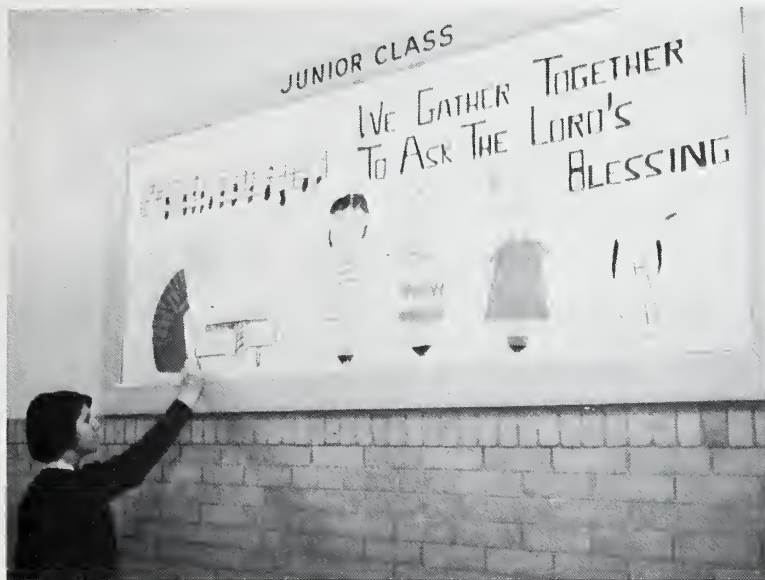 JUNIOR CLASS
WE GATHER TOGETHER
TO ASK THE LORD'S
BLESSING